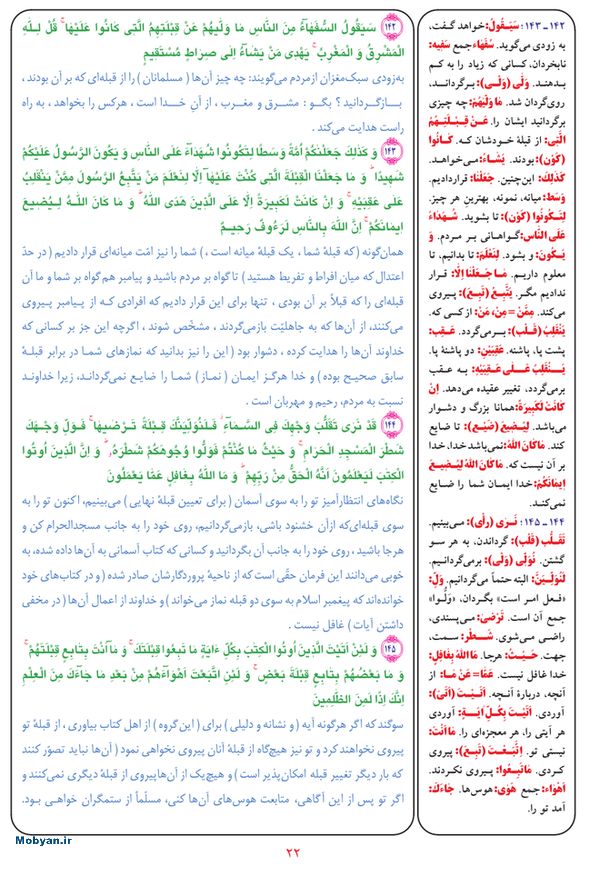 ۱۴۲ـ۱۴۳: سَیَقُولُ: خواهد گفت،
به زودی می‌گوید. سُفَهَاءُ جمع سَفِیه:
نابخردان، کسانی که زیاد را به کم
بدهند. وَلَّی (وَلْی): برگرداند،
روی‌گردان شد. مَا وَلَّیهُمْ: چه چیزی
برگردانید ایشان را. عَنْ قِبْلَتِهِمُ
الَّتِی: از قبلهٔ خودشان که. کَانُوا
(کَوْن): بودند. یَشَاءُ: می‌خواهد.
کَذٰلِكَ: این‌چنین. جَعَلْنَا: قراردادیم.
وَسَط: میانه، نمونه، بهترینِ هر چیز.
لِتَکُونُوا (کَوْن): تا بشوید. شُهَدَاءَ
عَلَی النَّاسِ: گواهانی بر مردم. وَ
یَکُونَ: و بشود. لِنَعْلَمَ: تا بدانیم، تا
معلوم داریم. مَا جَعَلْنَا اِلَّا: قرار
ندادیم مگر. یَتَّبِعُ (تَبِع): پیروی
می‌کند. مِمَّنْ=مِنْ، مَنْ: از کسی که.
یَنْقَلِبُ (قَلْب): برمی‌گردد. عَقِب:
پشت پا، پاشنه. عَقِبَیْنِ: دو پاشنهٔ پا.
یَنْقَلِبُ عَلَی عَقِبَیْهِ: به عقب
برمی‌گردد، تغییر عقیده می‌دهد. اِنْ
کَانَتْ لَکَبِیرَةً: همانا بزرگ و دشوار
می‌باشد. لِیُضِیعَ (ضَیْع): تا ضایع
کند. مَا کَانَ اللهُ: نمی‌باشد خدا، خدا
بر آن نیست که. مَا کَانَ اللهُ لِیُضِیعَ
اِیمَانَکُمْ: خدا ایمان شما را ضایع
نمی‌کند.
۱۴۴ـ۱۴۵: نَرَی (رأی): می‌بینیم.
تَقَلُّبَ (قلب): گرداندن، به هر سو
گشتن. نُوَلِّی (وَلْی): برمی‌گردانیم.
لَنُوَلِّیَنَّ: البته حتماً می‌گردانیم. وَلِّ:
«فعل امر است» بگردان، «وَلُّوا»
جمع آن است. تَرْضَی: می‌پسندی،
راضی می‌شوی. شَطْر: سمت،
جهت. حَیْثُ: هرجا. مَا اللهُ بِغَافِلٍ:
خدا غافل نیست. عَمَّا=عَنْ مَا: از
آنچه، دربارهٔ آنچه. اَتَیْتَ (اَتْی):
آوردی. اَتَیْتَ بِکُلِّ ایَةٍ: آوردی
هر آیتی را، هر معجزه‌ای را. مَا اَنْتَ:
نیستی تو. اِتَّبَعْتَ (تَبِع): پیروی
کردی. مَا تَبِعُوا: پیروی نکردند.
اَهْوَاء: جمع هَوَی: هوس‌ها. جَاءَكَ:
آمد تو را.
۱۴۲ سَیَقُولُ السُّفَهَاءُ مِنَ النَّاسِ مَا وَلّٰیهُمْ عَنْ قِبْلَتِهِمُ الَّتِی کَانُوا عَلَیْهَا ۚ قُلْ لِـلّٰهِ
الْمَشْرِقُ وَ الْمَغْرِبُ ۚ یَهْدِی مَنْ یَشَاءُ اِلٰی صِرَاطٍ مُسْتَقِیمٍ
به‌زودی سبک‌مغزان ازمردم می‌گویند: چه چیز آن‌ها ( مسلمانان ) را از قبله‌ای که بر آن بودند ،
بازگردانید ؟ بگو : مشرق و مغرب ، از آنِ خدا است ، هرکس را بخواهد ، به راه
راست هدایت می‌کند .
۱۴۳ وَ کَذٰلِكَ جَعَلْنٰکُمْ اُمَّةً وَسَطًا لِتَکُونُوا شُهَدَاءَ عَلَی النَّاسِ وَ یَکُونَ الرَّسُولُ عَلَیْکُمْ
شَهِیدًا ۗ وَ مَا جَعَلْنَا الْقِبْلَةَ الَّتِی کُنْتَ عَلَیْهَا اِلَّا لِنَعْلَمَ مَنْ یَتَّبِعُ الرَّسُولَ مِمَّنْ یَنْقَلِبُ
عَلٰی عَقِبَیْهِ ۚ وَ اِنْ کَانَتْ لَکَبِیرَةً اِلَّا عَلَی الَّذِینَ هَدَی اللهُ ۗ وَ مَا کَانَ اللهُ لِیُضِیعَ
اِیمَانَکُمْ ۚ اِنَّ اللهَ بِالنَّاسِ لَرَءُوفٌ رَحِیمٌ
همان‌گونه (که قبلهٔ شما ، یک قبلهٔ میانه است ، ) شما را نیز امّت میانه‌ای قرار دادیم ( در حدّ
اعتدال که میان افراط و تفریط هستید ) تا گواه بر مردم باشید و پیامبر هم گواه بر شما و ما آن
قبله‌ای را که قبلاً بر آن بودی ، تنها برای این قرار دادیم که افرادی کـه از پیـامبر پیـروی
می‌کنند، از آن‌ها که به جاهلیّت بازمی‌گردند ، مشخّص شوند ، اگرچه این جز بر کسانی که
خداوند آن‌ها را هدایت کرده ، دشوار بود ( این را نیز بدانید که نمازهای شما در برابر قبلهٔ
سابق صحیح بوده ) و خدا هرگز ایمان ( نماز ) شما را ضایع نمی‌گرداند، زیرا خداوند
نسبت به مردم، رحیم و مهربان است .
۱۴۴ قَدْ نَرٰی تَقَلُّبَ وَجْهِكَ فِی السَّمَاءِ ۖ فَلَنُوَلِّیَنَّكَ قِبْلَةً تَـرْضٰیهَا ۚ فَوَلِّ وَجْهَكَ
شَطْرَ الْمَسْجِدِ الْحَرَامِ ۚ وَ حَیْثُ مَا کُنْتُمْ فَوَلُّوا وُجُوهَکُمْ شَطْرَهُ ۗ وَ اِنَّ الَّذِینَ اُوتُوا
الْکِتٰبَ لَیَعْلَمُونَ اَنَّهُ الْحَقُّ مِنْ رَبِّهِمْ ۗ وَ مَا اللهُ بِغَافِلٍ عَمَّا یَعْمَلُونَ
نگاه‌های انتظارآمیز تو را به سوی آسمان ( برای تعیین قبلهٔ نهایی ) می‌بینیم، اکنون تو را به
سوی قبله‌ای‌که ازآن خشنود باشی، بازمی‌گردانیم، روی خود را به جانب مسجدالحرام کن و
هرجا باشید ، روی خود را به جانب آن بگردانید و کسانی که کتاب آسمانی به آن‌ها داده شده، به
خوبی می‌دانند این فرمان حقّی است که از ناحیهٔ پروردگارشان صادر شده ( و در کتاب‌های خود
خوانده‌اند که پیغمبر اسلام به سوی دو قبله نماز می‌خواند ) و خداوند از اعمال آن‌ها ( در مخفی
داشتن آیات ) غافل نیست .
۱۴۵ وَ لَئِنْ اَتَیْتَ الَّذِینَ اُوتُوا الْکِتٰبَ بِکُلِّ ءَایَةٍ مَا تَبِعُوا قِبْلَتَكَ ۚ وَ مَا اَنْتَ بِتَابِعٍ قِبْلَتَهُمْ ۚ
وَ مَا بَعْضُهُمْ بِتَابِعٍ قِبْلَةَ بَعْضٍ ۚ وَ لَئِنِ اتَّبَعْتَ اَهْوَاءَهُمْ مِنْ بَعْدِ مَا جَاءَكَ مِنَ الْعِلْمِ ۙ
اِنَّكَ اِذًا لَمِنَ الظّٰلِمِینَ
سوگند که اگر هرگونه آیه ( و نشانه و دلیلی ) برای ( این‌گروه ) از اهل کتاب بیاوری ، از قبلهٔ تو
پیروی نخواهند کرد و تو نیز هیچ‌گاه از قبلهٔ آنان پیروی نخواهی نمود ( آن‌ها نباید تصوّر کنند
که بار دیگر تغییر قبله امکان‌پذیر است ) و هیچ‌یک از آن‌هاپیروی از قبلهٔ دیگری نمی‌کنند و
اگر تو پس از این آگاهی، متابعت هوس‌های آن‌ها کنی، مسلّماً از ستمگران خواهی بود.
Mobyan.ir
۲۲